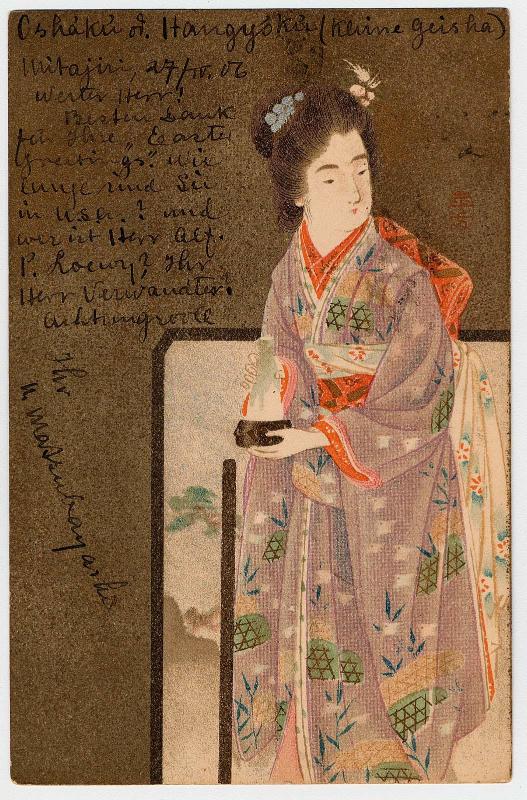 Osháku od. Hangyóku (kleine Geisha)
Mitajiri, 27/IV. 06
Werter Herr!
Besten Dank
für Ihre „Easter
Greetings". Wie
lange sind Sie
in U.S.A.? und
wer ist Herr Alf.
P. Loewy? Ihr
Herr Verwandter?
Achtungsvoll
Ihr